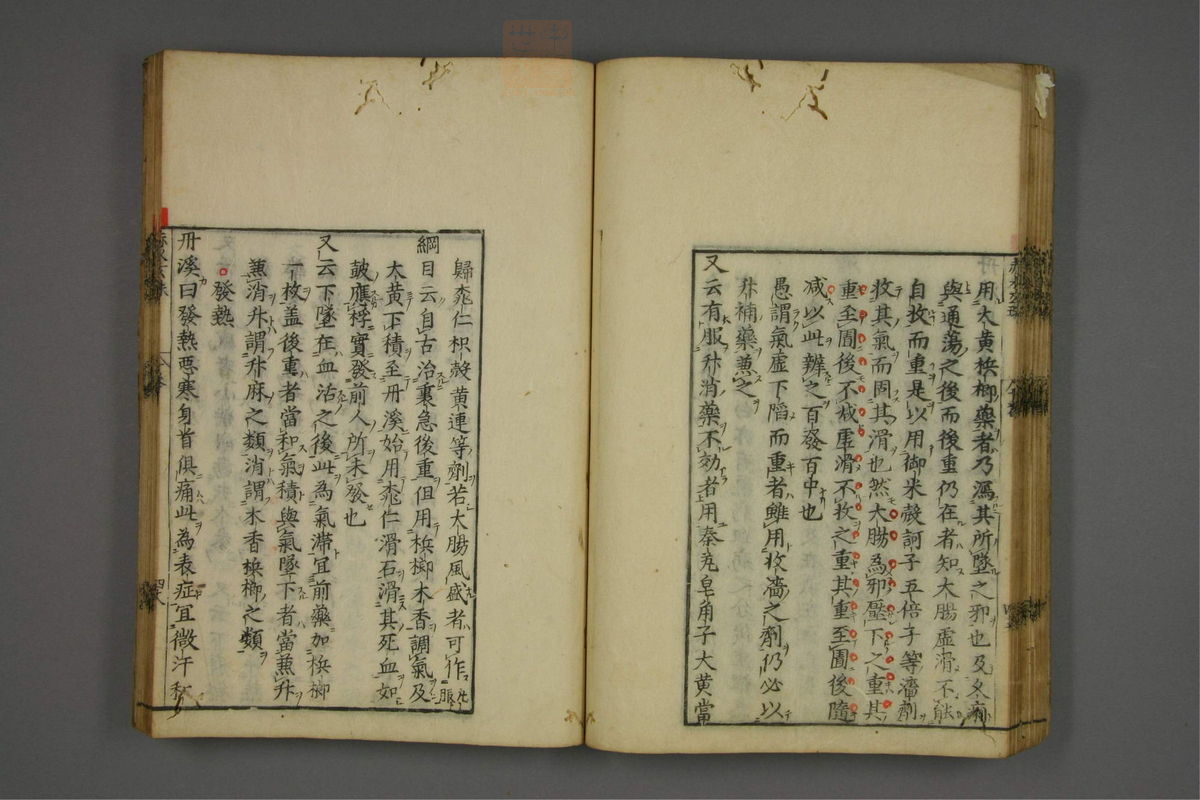 用大黄梹榔藥者乃瀉其所墜之邪也及久痢
與通蕩之後而後重仍在者知大腸虛滑不能
自收而重是以用御米殼訶子五倍子等濇劑
收其氣而固其滑也然大腸為邪壓下之重其
重至圊後不减虛滑不收之重其重至圊後隨
减以此辨之百發百中也
愚謂氣虛下陷而重者雖用收濇之劑仍必以
升補藥兼之
又云有服升消藥不効者用秦艽皂角子大黄當
歸桃仁枳殼黄連等劑若大腸風盛者可作丸服
綱目云自古治裏急後重但用梹榔木香調氣及
大黄下積至丹溪始用桃仁滑石滑其死血如
皷應桴實發前人所未發也
又云下墜在血活之後此為氣滯宜前藥加梹榔
一枚盖後重者當和氣積與氣墜下者當兼升
兼消升謂升麻之類消謂木香梹榔之類
發熱
丹溪曰發熱悪寒身首俱痛此為表症宜微汗和